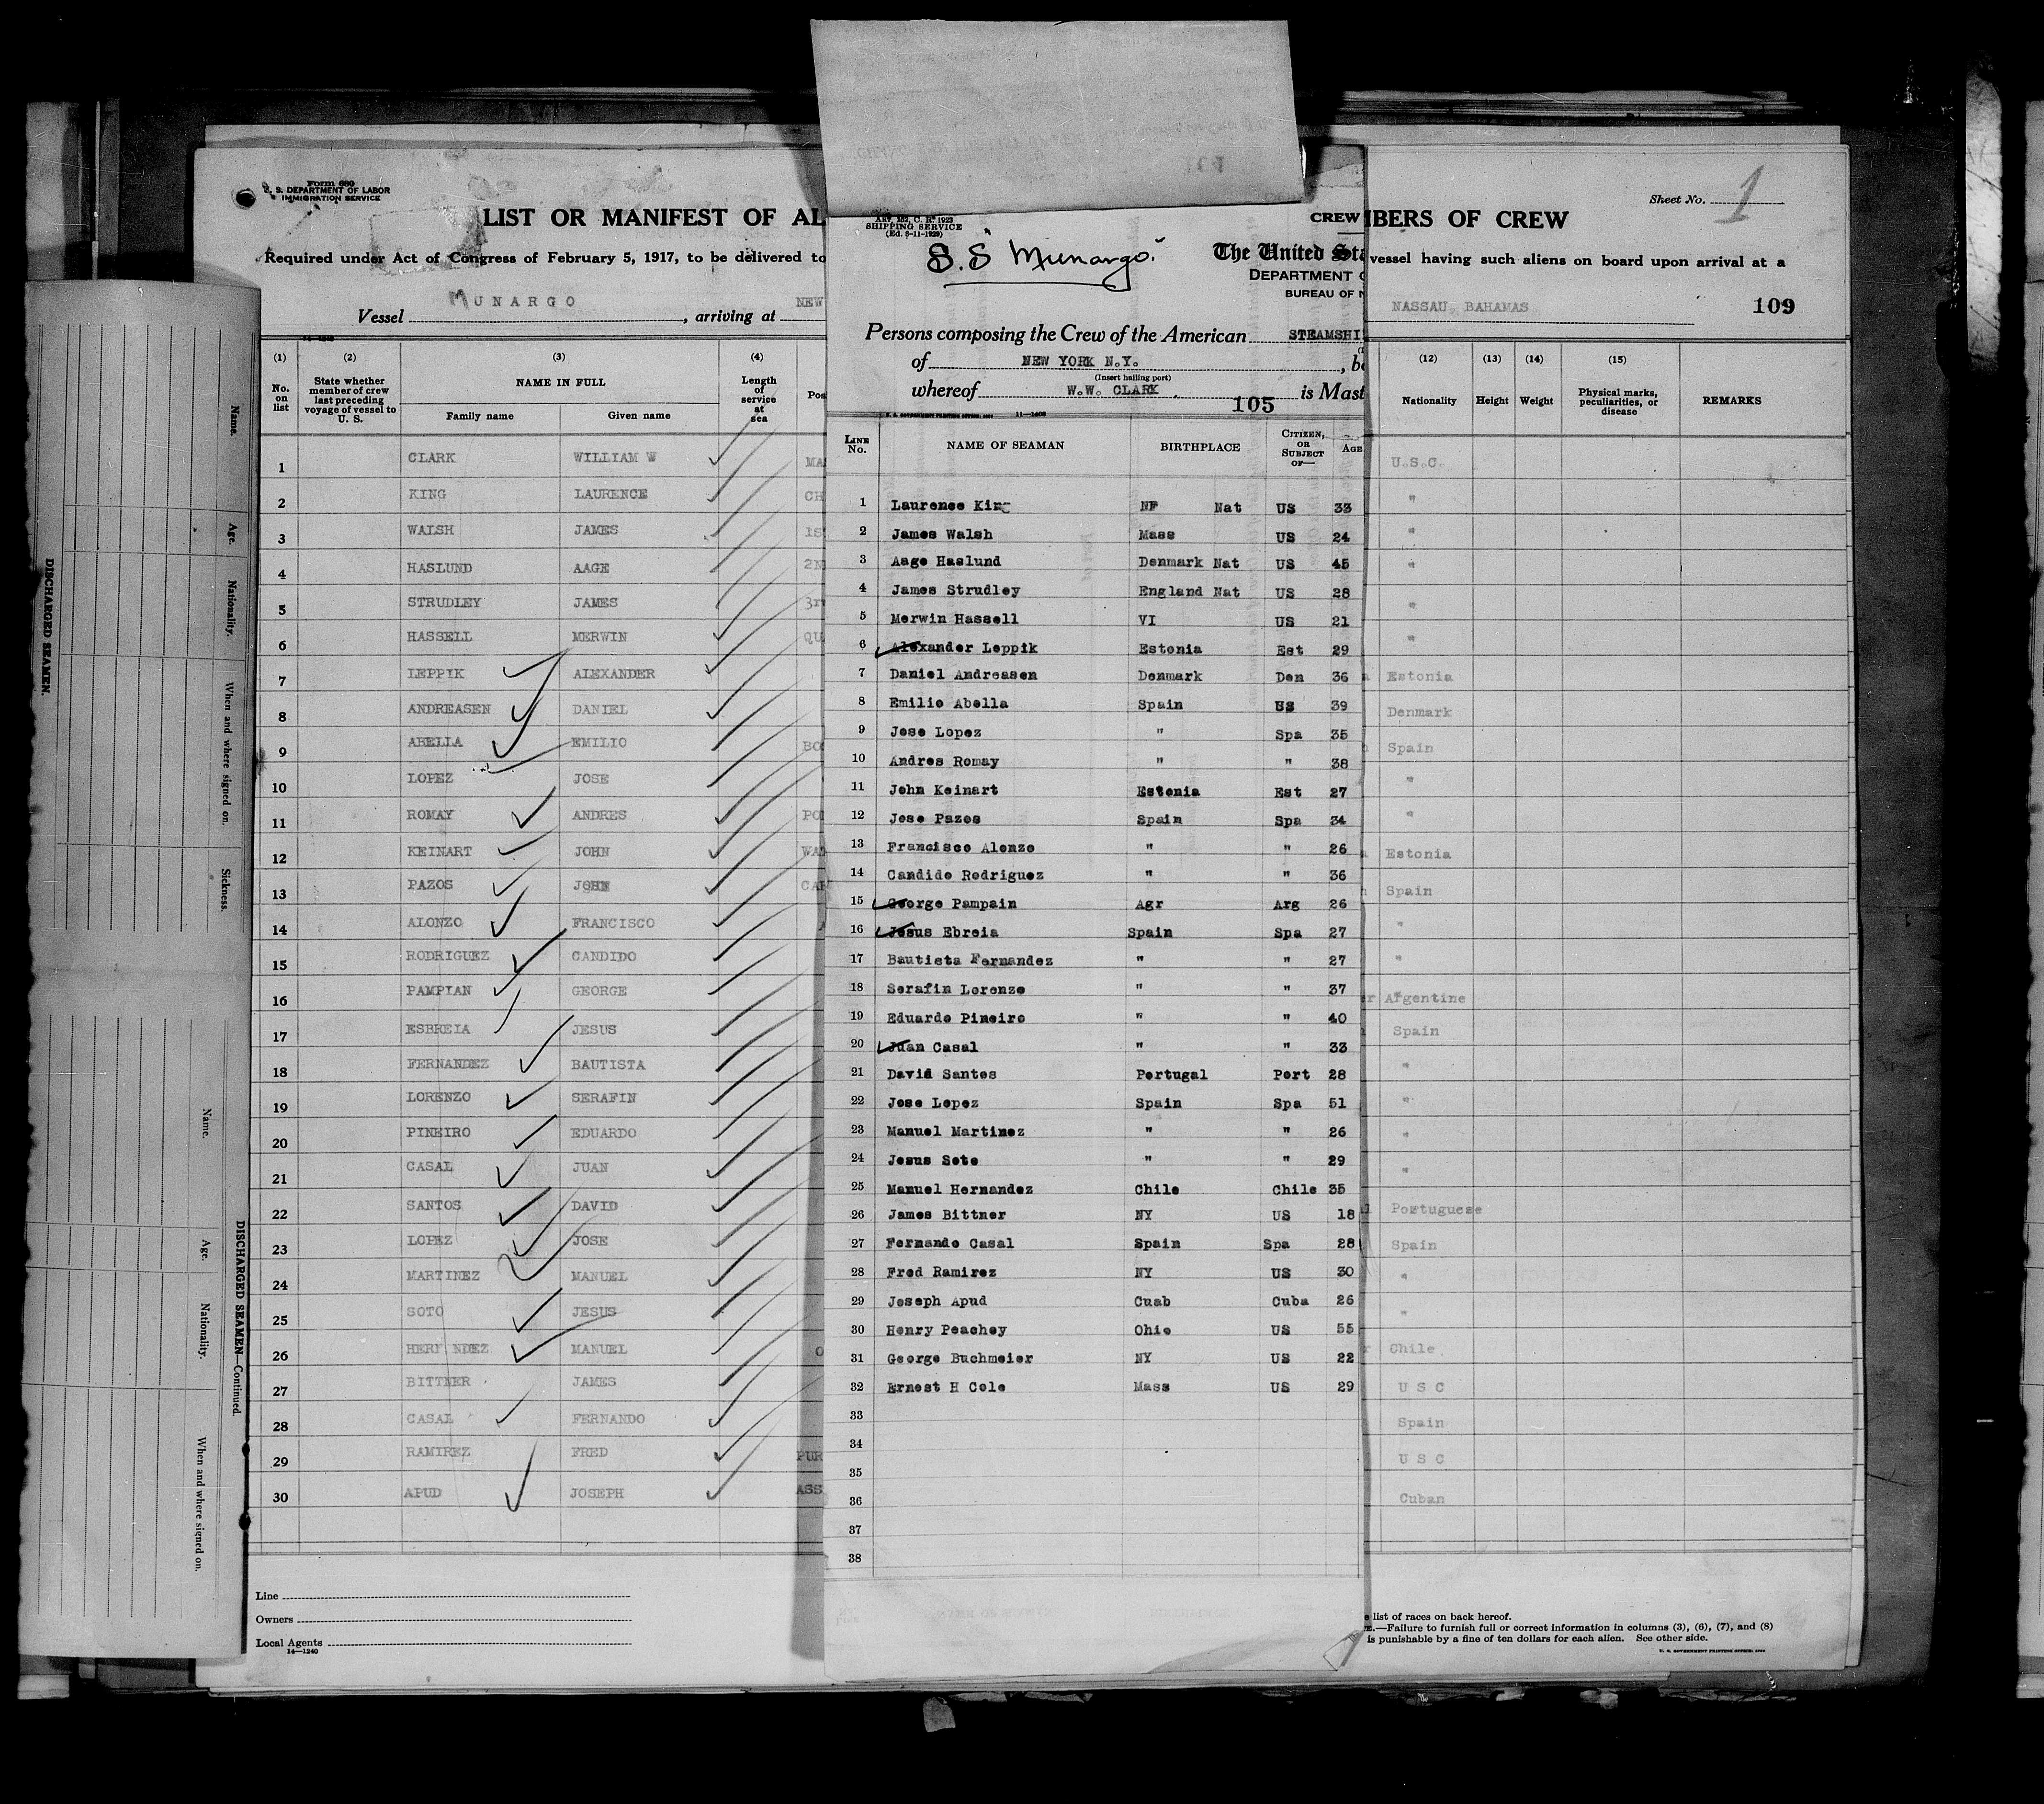 Form 689
U. S. DEPARTMENT OF LABOR
IMMIGRATION SERVICE
LIST OR MANIFEST OF AL
Required under Act of Congress of February 5, 1917, to be delivered to
Vessel MUNARGO, arriving at NEW
(1) (2) (3) (4)
No. on list
State whether member of crew last preceding voyage of vessel to U. S.
NAME IN FULL
Family name Given name
Length of service at sea
Pos
1 CLARK WILLIAM W MA
2 KING LAURENCE CH
3 WALSH JAMES 1S
4 HASLUND AAGE 2N
5 STRUDLEY JAMES 3r
6 HASSELL MERWIN QU
7 LEPPIK ALEXANDER
8 ANDREASEN DANIEL
9 ABELLA EMILIO BO
10 LOPEZ JOSE
11 ROMAY ANDRES PO
12 KEINART JOHN WA
13 PAZOS JOHN CA
14 ALONZO FRANCISCO
15 RODRIGUEZ CANDIDO
16 PAMPIAN GEORGE
17 ESBREIA JESUS
18 FERNANDEZ BAUTISTA
19 LORENZO SERAFIN
20 PINEIRO EDUARDO
21 CASAL JUAN
22 SANTOS DAVID
23 LOPEZ JOSE
24 MARTINEZ MANUEL
25 SOTO JESUS
26 HER NDEZ MANUEL O
27 BITTNER JAMES
28 CASAL FERNANDO
29 RAMIREZ FRED PUR
30 APUD JOSEPH ASS
Line
Owners
Local Agents
14—1240
ART. 162, C. R. 1923
SHIPPING SERVICE
(Ed. 8-11-1929)
S.S "Munargo"
CREW
The United Sta
DEPARTMENT O
BUREAU OF N
Persons composing the Crew of the American STEAMSHI
of NEW YORK N.Y. , b
(Insert hailing port)
whereof W.W. CLARK . is Mast
105
U. S. GOVERNMENT PRINTING OFFICE 11—1400
LINE No. NAME OF SEAMAN BIRTHPLACE CITIZEN, OR SUBJECT OF— AGE
1 Laurence King NF Nat US 33
2 James Walsh Mass US 24
3 Aage Haslund Denmark Nat US 45
4 James Strudley England Nat US 28
5 Merwin Hassell VI US 21
6 Alexander Leppik Estonia Est 29
7 Daniel Andreasen Denmark Den 36
8 Emilio Abella Spain US 39
9 Jose Lopez " Spa 35
10 Andres Romay " " 38
11 John Keinart Estonia Est 27
12 Jose Pazos Spain Spa 34
13 Francisco Alonzo " " 26
14 Candido Rodriguez " " 36
15 George Pampain Agr Arg 26
16 Jesus Ebreia Spain Spa 27
17 Bautista Fernandez " " 27
18 Serafin Lorenzo " " 37
19 Eduardo Pineiro " " 40
20 Juan Casal " " 33
21 David Santos Portugal Port 28
22 Jose Lopez Spain Spa 51
23 Manuel Martinez " " 26
24 Jesus Soto " " 29
25 Manuel Hernandez Chile Chile 35
26 James Bittner NY US 18
27 Fernando Casal Spain Spa 28
28 Fred Ramirez NY US 30
29 Joseph Apud Cuab Cuba 26
30 Henry Peachey Ohio US 55
31 George Buchmeier NY US 22
32 Ernest H Cole Mass US 29
33
34
35
36
37
38
Sheet No. 1
BERS OF CREW
vessel having such aliens on board upon arrival at a
NASSAU, BAHAMAS
109
(12) (13) (14) (15)
Nationality Height Weight Physical marks, peculiarities, or disease REMARKS
U.S.C.
"
"
"
"
"
Estonia
Denmark
Spain
"
"
Estonia
Spain
"
"
Argentine
Spain
"
"
"
"
Portuguese
Spain
"
"
Chile
U S C
Spain
U S C
Cuban
list of races on back hereof.
.—Failure to furnish full or correct information in columns (3), (6), (7), and (8)
is punishable by a fine of ten dollars for each alien. See other side.
U. S. GOVERNMENT PRINTING OFFICE
DISCHARGED SEAMEN.
Name.
Age.
Nationality.
When and where signed on.
Sickness.
DISCHARGED SEAMEN—Continued.
Name.
Age.
Nationality.
When and where signed on.